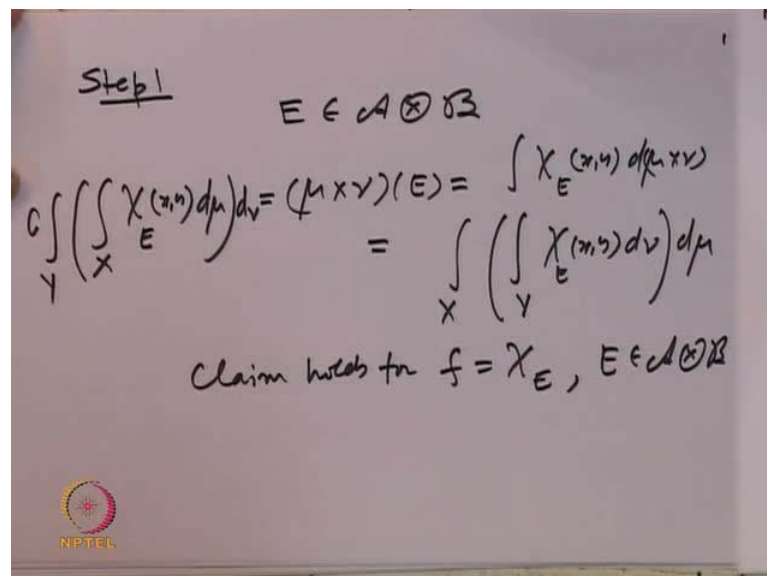 Step 1
E ∈ A ⊗ B
∫_Y (∫_X χ_E(x,y) dμ) dν = (μ×ν)(E) = ∫ χ_E(x,y) d(μ×ν)
= ∫_X (∫_Y χ_E(x,y) dν) dμ
Claim holds for f = χ_E, E ∈ A ⊗ B
NPTEL